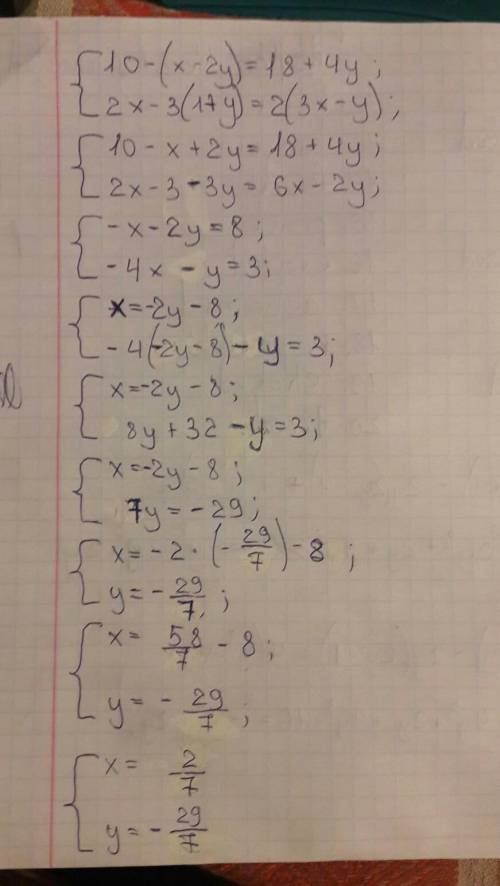 10-(x-2y)=18+4y;
2x-3(1+y)=2(3x-y);
10-x+2y=18+4y;
2x-3-3y=6x-2y;
-x-2y=8;
-4x-y=3;
x=-2y-8;
-4(-2y-8)-y=3;
x=-2y-8;
8y+32-y=3;
x=-2y-8;
7y=-29;
x=-2·(-29/7)-8;
y=-29/7;
x=58/7-8;
y=-29/7;
x=2/7
y=-29/7